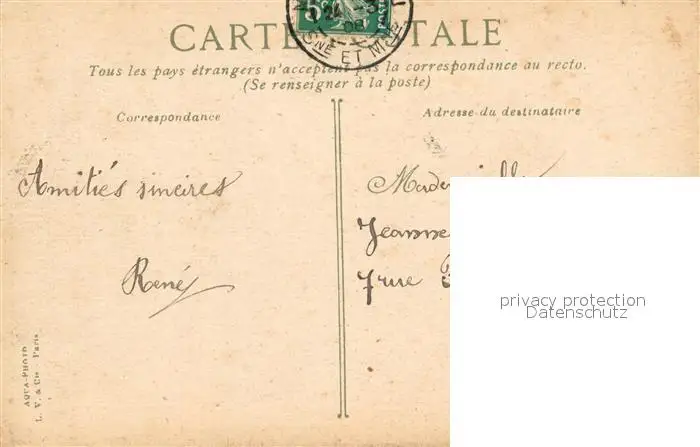 CARTE POSTALE
Tous les pays étrangers n'acceptent pas la correspondance au recto.
(Se renseigner à la poste)
Correspondance
Adresse du destinataire
Amitiés sincères
René
Jeanne
7 rue
AQUA-PHOTO
L. V. & Cie - Paris
privacy protection
Datenschutz